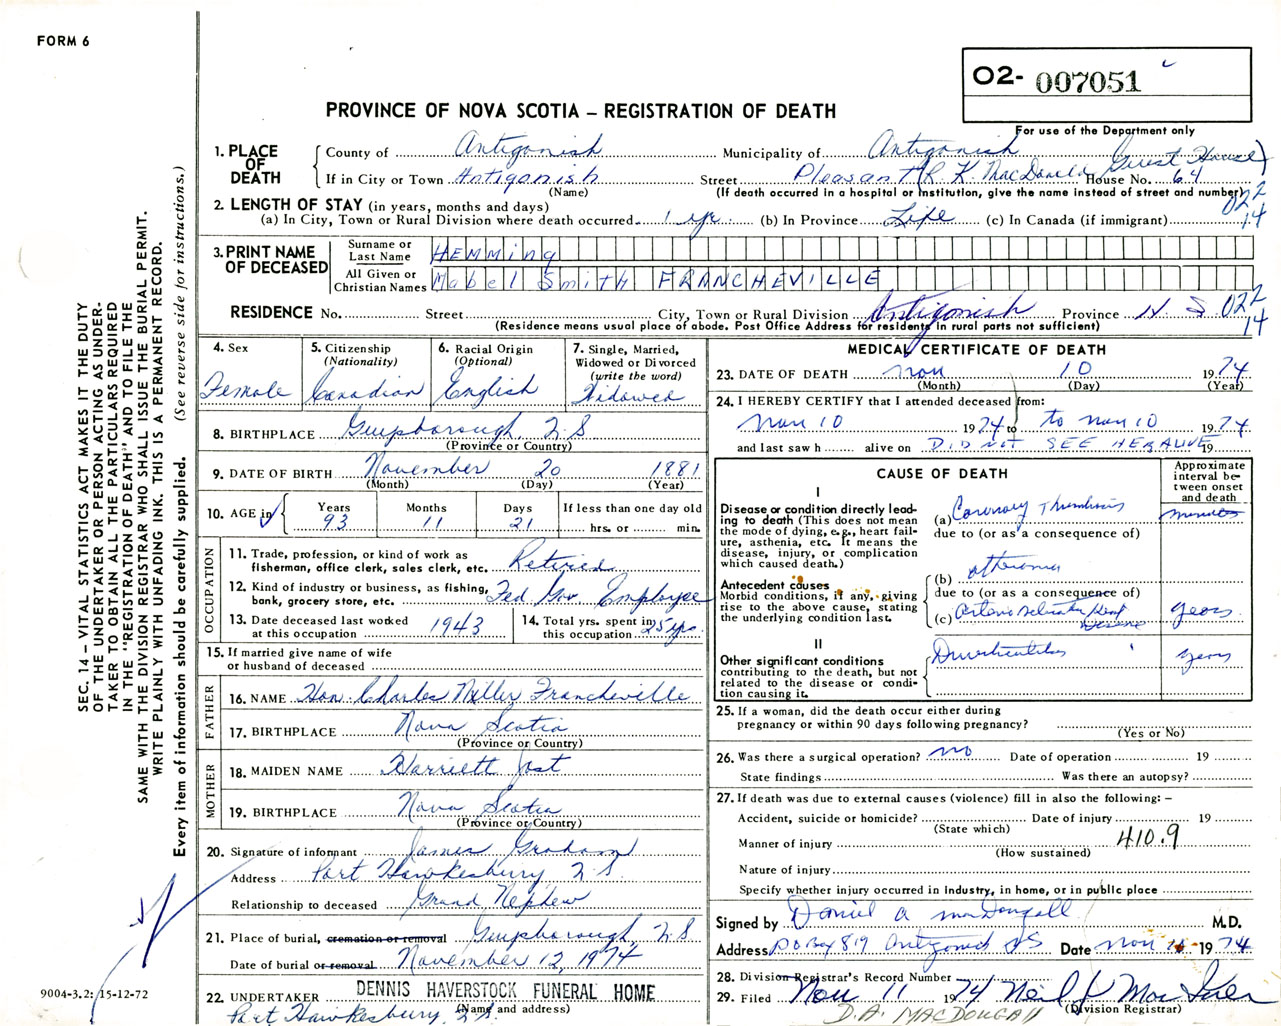 FORM 6
O2- 007051
PROVINCE OF NOVA SCOTIA – REGISTRATION OF DEATH
For use of the Department only
1. PLACE OF DEATH
County of Antigonish Municipality of Antigonish
If in City or Town Antigonish Street Pleasant (R. K. MacDonald Guest House) House No. 64
(Name) (If death occurred in a hospital or institution, give the name instead of street and number)
022
14
2. LENGTH OF STAY (in years, months and days)
(a) In City, Town or Rural Division where death occurred 1 yr. (b) In Province Life (c) In Canada (if immigrant)
3. PRINT NAME OF DECEASED
Surname or Last Name HEMMING
All Given or Christian Names Mabel Smith FRANCHEVILLE
RESIDENCE No. Street City, Town or Rural Division Antigonish Province N. S. 022
14
(Residence means usual place of abode. Post Office Address for residents in rural parts not sufficient)
4. Sex
Female
5. Citizenship
(Nationality)
Canadian
6. Racial Origin
(Optional)
English
7. Single, Married,
Widowed or Divorced
(write the word)
Widowed
8. BIRTHPLACE Guysborough N S
(Province or Country)
9. DATE OF BIRTH November 20 1881
(Month) (Day) (Year)
10. AGE in
Years Months Days If less than one day old
93 11 21 hrs. or min.
OCCUPATION
11. Trade, profession, or kind of work as
fisherman, office clerk, sales clerk, etc. Retired
12. Kind of industry or business, as fishing,
bank, grocery store, etc. Fed Gov. Employee
13. Date deceased last worked
at this occupation 1943
14. Total yrs. spent in
this occupation 25 yrs.
15. If married give name of wife
or husband of deceased
FATHER
16. NAME Hon. Charles Miller Francheville
17. BIRTHPLACE Nova Scotia
(Province or Country)
MOTHER
18. MAIDEN NAME Harriett Jost
19. BIRTHPLACE Nova Scotia
(Province or Country)
20. Signature of informant James Graham
Address Port Hawkesbury, N.S.
Relationship to deceased Grand Nephew
21. Place of burial, cremation or removal Guysborough, N S
Date of burial or removal November 12, 1974
22. UNDERTAKER DENNIS HAVERSTOCK FUNERAL HOME
(Name and address)
Port Hawkesbury, N.S.
MEDICAL CERTIFICATE OF DEATH
23. DATE OF DEATH Nov 10 1974
(Month) (Day) (Year)
24. I HEREBY CERTIFY that I attended deceased from:
Nov 10 1974 to to Nov 10 1974
and last saw h alive on DID NOT SEE HER ALIVE 19
CAUSE OF DEATH
Approximate
interval be-
tween onset
and death
I
Disease or condition directly lead-
ing to death (This does not mean
the mode of dying, e.g., heart fail-
ure, asthenia, etc. It means the
disease, injury, or complication
which caused death.)
(a) Coronary Thrombosis minutes
due to (or as a consequence of)
Antecedent causes
Morbid conditions, if any, giving
rise to the above cause, stating
the underlying condition last.
(b) atheroma
due to (or as a consequence of)
(c) Arteriosclerotic Heart
Disease years
II
Other significant conditions
contributing to the death, but not
related to the disease or condi-
tion causing it.
Diverticulitis years
25. If a woman, did the death occur either during
pregnancy or within 90 days following pregnancy?
(Yes or No)
26. Was there a surgical operation? no Date of operation 19
State findings Was there an autopsy?
27. If death was due to external causes (violence) fill in also the following: –
Accident, suicide or homicide? Date of injury 19
(State which)
Manner of injury 410.9
(How sustained)
Nature of injury
Specify whether injury occurred in industry, in home, or in public place
Signed by Daniel A MacDougall M.D.
Address P O Box 819 Antigonish NS Date Nov 1974
28. Division Registrar's Record Number
29. Filed Nov 11 1974 Neil J Mac
(Division Registrar)
D.A. MACDOUGALL
SEC. 14 – VITAL STATISTICS ACT MAKES IT THE DUTY
OF THE UNDERTAKER OR PERSON ACTING AS UNDER-
TAKER TO OBTAIN ALL THE PARTICULARS REQUIRED
IN THE "REGISTRATION OF DEATH" AND TO FILE THE
SAME WITH THE DIVISION REGISTRAR WHO SHALL ISSUE THE BURIAL PERMIT.
WRITE PLAINLY WITH UNFADING INK. THIS IS A PERMANENT RECORD.
Every item of information should be carefully supplied. (See reverse side for instructions.)
9004-3.2: 15-12-72